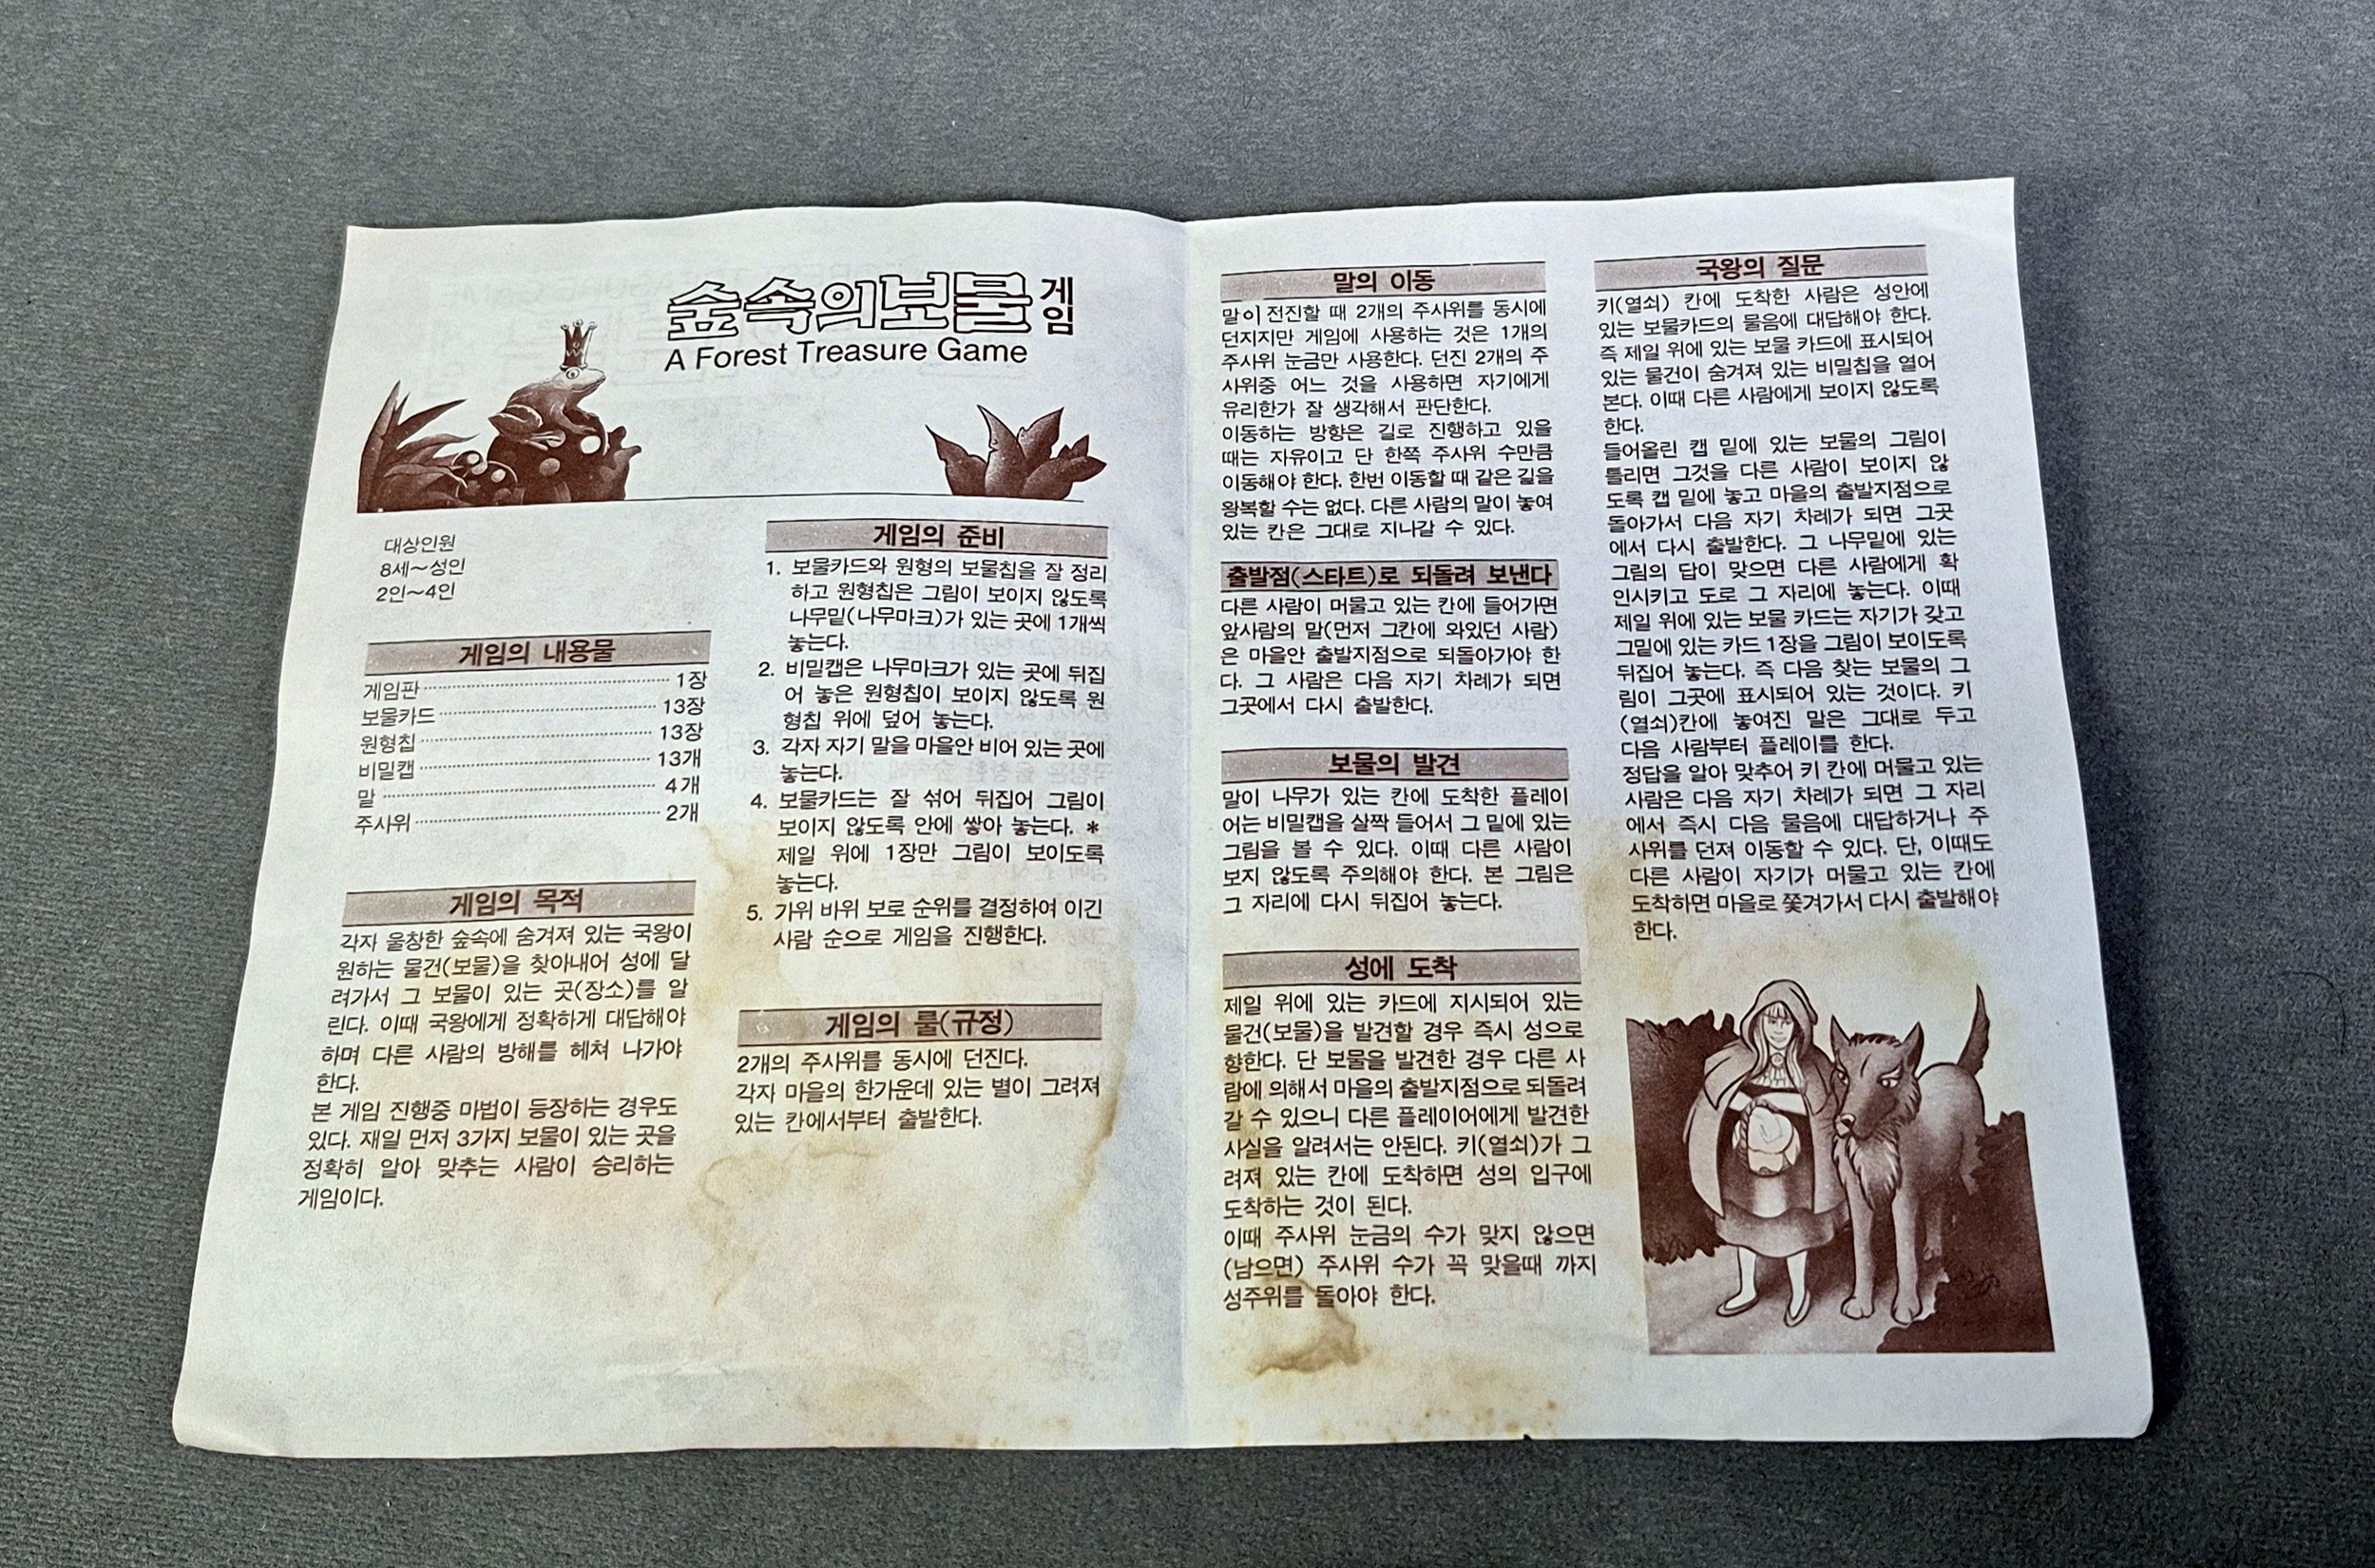 숲속의보물
게임
A Forest Treasure Game
대상인원
8세~성인
2인~4인
게임의 내용물
게임판 1장
보물카드 13장
원형칩 13장
비밀캡 13개
말 4개
주사위 2개
게임의 목적
각자 울창한 숲속에 숨겨져 있는 국왕이
원하는 물건(보물)을 찾아내어 성에 달
려가서 그 보물이 있는 곳(장소)를 알
린다. 이때 국왕에게 정확하게 대답해야
하며 다른 사람의 방해를 헤쳐 나가야
한다.
본 게임 진행중 마법이 등장하는 경우도
있다. 재일 먼저 3가지 보물이 있는 곳을
정확히 알아 맞추는 사람이 승리하는
게임이다.
게임의 준비
1. 보물카드와 원형의 보물칩을 잘 정리
하고 원형칩은 그림이 보이지 않도록
나무밑(나무마크)가 있는 곳에 1개씩
놓는다.
2. 비밀캡은 나무마크가 있는 곳에 뒤집
어 놓은 원형칩이 보이지 않도록 원
형칩 위에 덮어 놓는다.
3. 각자 자기 말을 마을안 비어 있는 곳에
놓는다.
4. 보물카드는 잘 섞어 뒤집어 그림이
보이지 않도록 안에 쌓아 놓는다. *
제일 위에 1장만 그림이 보이도록
놓는다.
5. 가위 바위 보로 순위를 결정하여 이긴
사람 순으로 게임을 진행한다.
게임의 룰(규정)
2개의 주사위를 동시에 던진다.
각자 마을의 한가운데 있는 별이 그려져
있는 칸에서부터 출발한다.
말의 이동
말이 전진할 때 2개의 주사위를 동시에
던지지만 게임에 사용하는 것은 1개의
주사위 눈금만 사용한다. 던진 2개의 주
사위중 어느 것을 사용하면 자기에게
유리한가 잘 생각해서 판단한다.
이동하는 방향은 길로 진행하고 있을
때는 자유이고 단 한쪽 주사위 수만큼
이동해야 한다. 한번 이동할 때 같은 길을
왕복할 수는 없다. 다른 사람의 말이 놓여
있는 칸은 그대로 지나갈 수 있다.
출발점(스타트)로 되돌려 보낸다
다른 사람이 머물고 있는 칸에 들어가면
앞사람의 말(먼저 그칸에 와있던 사람)
은 마을안 출발지점으로 되돌아가야 한
다. 그 사람은 다음 자기 차례가 되면
그곳에서 다시 출발한다.
보물의 발견
말이 나무가 있는 칸에 도착한 플레이
어는 비밀캡을 살짝 들어서 그 밑에 있는
그림을 볼 수 있다. 이때 다른 사람이
보지 않도록 주의해야 한다. 본 그림은
그 자리에 다시 뒤집어 놓는다.
성에 도착
제일 위에 있는 카드에 지시되어 있는
물건(보물)을 발견할 경우 즉시 성으로
향한다. 단 보물을 발견한 경우 다른 사
람에 의해서 마을의 출발지점으로 되돌려
갈 수 있으니 다른 플레이어에게 발견한
사실을 알려서는 안된다. 키(열쇠)가 그
려져 있는 칸에 도착하면 성의 입구에
도착하는 것이 된다.
이때 주사위 눈금의 수가 맞지 않으면
(남으면) 주사위 수가 꼭 맞을때 까지
성주위를 돌아야 한다.
국왕의 질문
키(열쇠) 칸에 도착한 사람은 성안에
있는 보물카드의 물음에 대답해야 한다.
즉 제일 위에 있는 보물 카드에 표시되어
있는 물건이 숨겨져 있는 비밀칩을 열어
본다. 이때 다른 사람에게 보이지 않도록
한다.
들어올린 캡 밑에 있는 보물의 그림이
틀리면 그것을 다른 사람이 보이지 않
도록 캡 밑에 놓고 마을의 출발지점으로
돌아가서 다음 자기 차례가 되면 그곳
에서 다시 출발한다. 그 나무밑에 있는
그림의 답이 맞으면 다른 사람에게 확
인시키고 도로 그 자리에 놓는다. 이때
제일 위에 있는 보물 카드는 자기가 갖고
그밑에 있는 카드 1장을 그림이 보이도록
뒤집어 놓는다. 즉 다음 찾는 보물의 그
림이 그곳에 표시되어 있는 것이다. 키
(열쇠)칸에 놓여진 말은 그대로 두고
다음 사람부터 플레이를 한다.
정답을 알아 맞추어 키 칸에 머물고 있는
사람은 다음 자기 차례가 되면 그 자리
에서 즉시 다음 물음에 대답하거나 주
사위를 던져 이동할 수 있다. 단, 이때도
다른 사람이 자기가 머물고 있는 칸에
도착하면 마을로 쫓겨가서 다시 출발해야
한다.